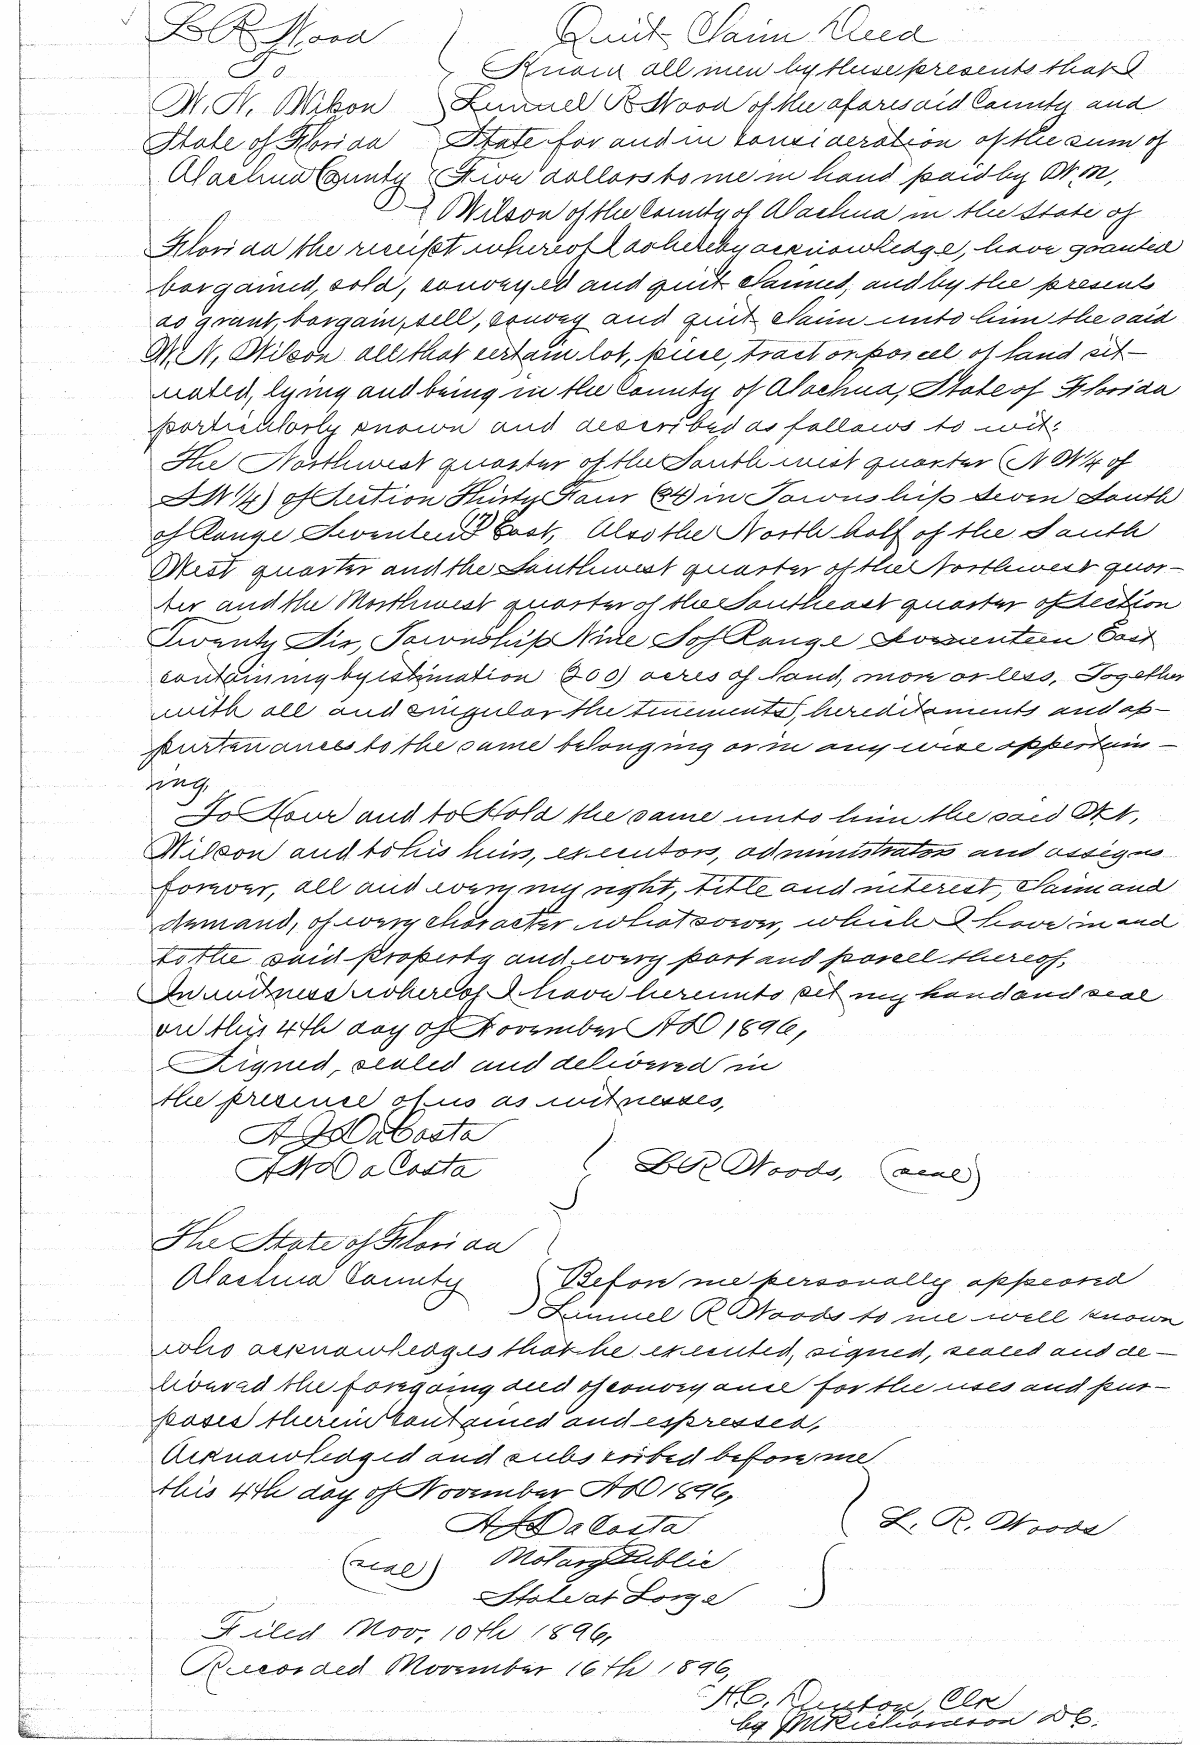 L R Wood
To
W. N. Wilson
State of Florida
Alachua County
Quit Claim Deed
Know all men by these presents that I
Lemuel R Wood of the aforesaid County and
State for and in consideration of the sum of
Five dollars to me in hand paid by W. N,
Wilson of the County of Alachua in the State of
Florida the receipt whereof I do hereby acknowledge, have granted
bargained, sold, conveyed and quit claimed, and by the presents
do grant, bargain, sell, convey and quit claim unto him the said
W. N, Wilson all that certain lot, piece, tract or parcel of land sit-
uated, lying and being in the County of Alachua, State of Florida
particularly known and described as follows to wit:
The Northwest quarter of the South west quarter (N W¼ of
S W¼) of Section Thirty Four (34) in Township Seven South
of Range Seventeen (17) East, Also the North half of the South
West quarter and the Southwest quarter of the Northwest quar-
ter and the Northwest quarter of the Southeast quarter of Section
Twenty Six, Township Nine S of Range Seventeen East
containing by estimation 200 acres of land, more or less, Together
with all and singular the tenements, hereditaments and ap-
purtenances to the same belonging or in any wise appertain-
ing,
To Have and to Hold the same unto him the said W. N,
Wilson and to his heirs, executors, administrators and assigns
forever, all and every my right, title and interest, Claim and
demand, of every character whatsoever, which I have in and
to the said property and every part and parcell thereof,
In witness whereof I have hereunto set my hand and seal
on this 4th day of November A D 1896,
Signed, sealed and delivered in
the presence of us as witnesses,
A J DaCosta
A W DaCosta
L R Woods, (seal)
The State of Florida
Alachua County
Before me personally appeared
Lemuel R Woods to me well known
who acknowledges that he executed, signed, sealed and de-
livered the foregoing deed of conveyance for the uses and pur-
poses therein contained and expressed,
Acknowledged and subscribed before me
this 4th day of November A D 1896,
L. R. Woods
A J DaCosta
(seal) Notary Public
State at Large
Filed Nov, 10th 1896,
Recorded November 16th 1896,
H C, Denton, Clk
by M Richardson D C.